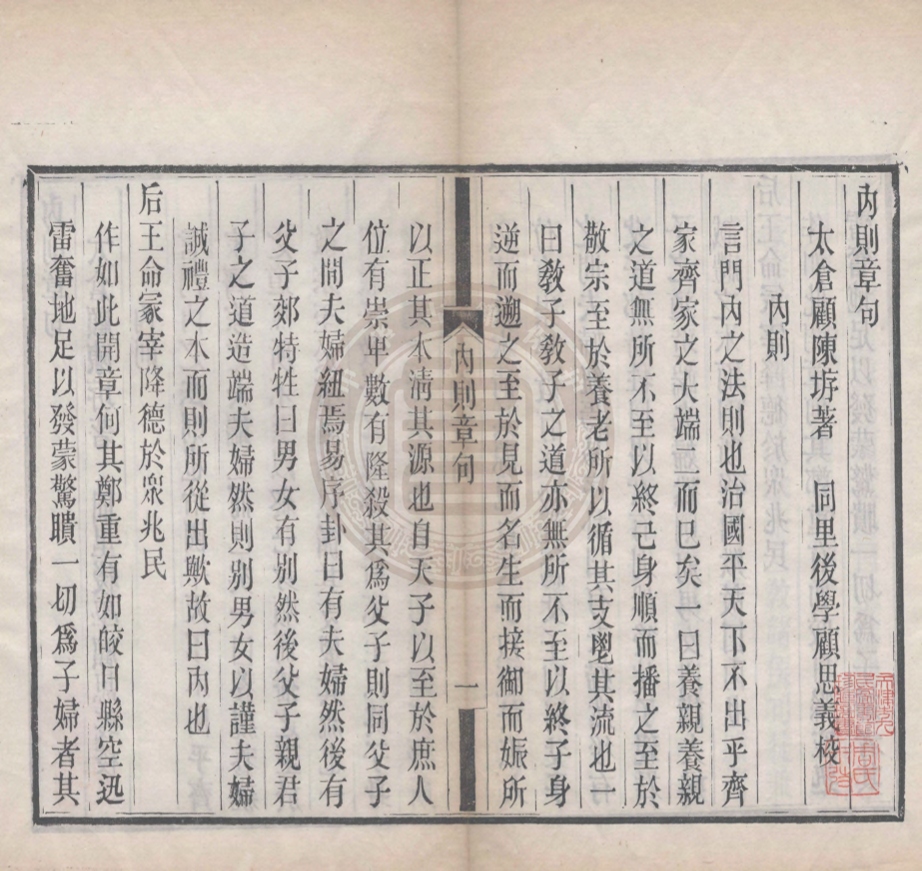 內則章句
太倉顧陳垿著　同里後學顧思義校
內則
言門內之法則也治國平天下不出乎齊
家齊家之大端二而已矣一曰養親養親
之道無所不至以終己身順而播之至於
敬宗至於養老所以循其支鬯其流也一
曰教子教子之道亦無所不至以終子身
逆而遡之至於見而名生而接御而娠所
內則章句　一
以正其本清其源也自天子以至於庶人
位有崇卑數有隆殺其爲父子則同父子
之間夫婦紐焉易序卦曰有夫婦然後有
父子郊特牲曰男女有別然後父子親君
子之道造端夫婦然則別男女以謹夫婦
誠禮之本而則所從出歟故曰內也
后王命冢宰降德於眾兆民
作如此開章何其鄭重有如皎日縣空迅
雷奮地足以發蒙驚聵一切爲子婦者其